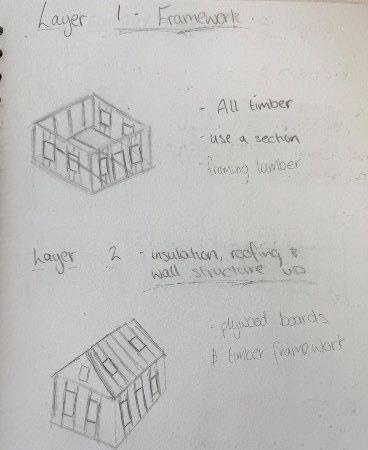 Layer 1 - Framework
- All timber
- use a section
- framing lumber
Layer 2 - insulation, roofing &
wall structure
- plywood boards
& timber framework